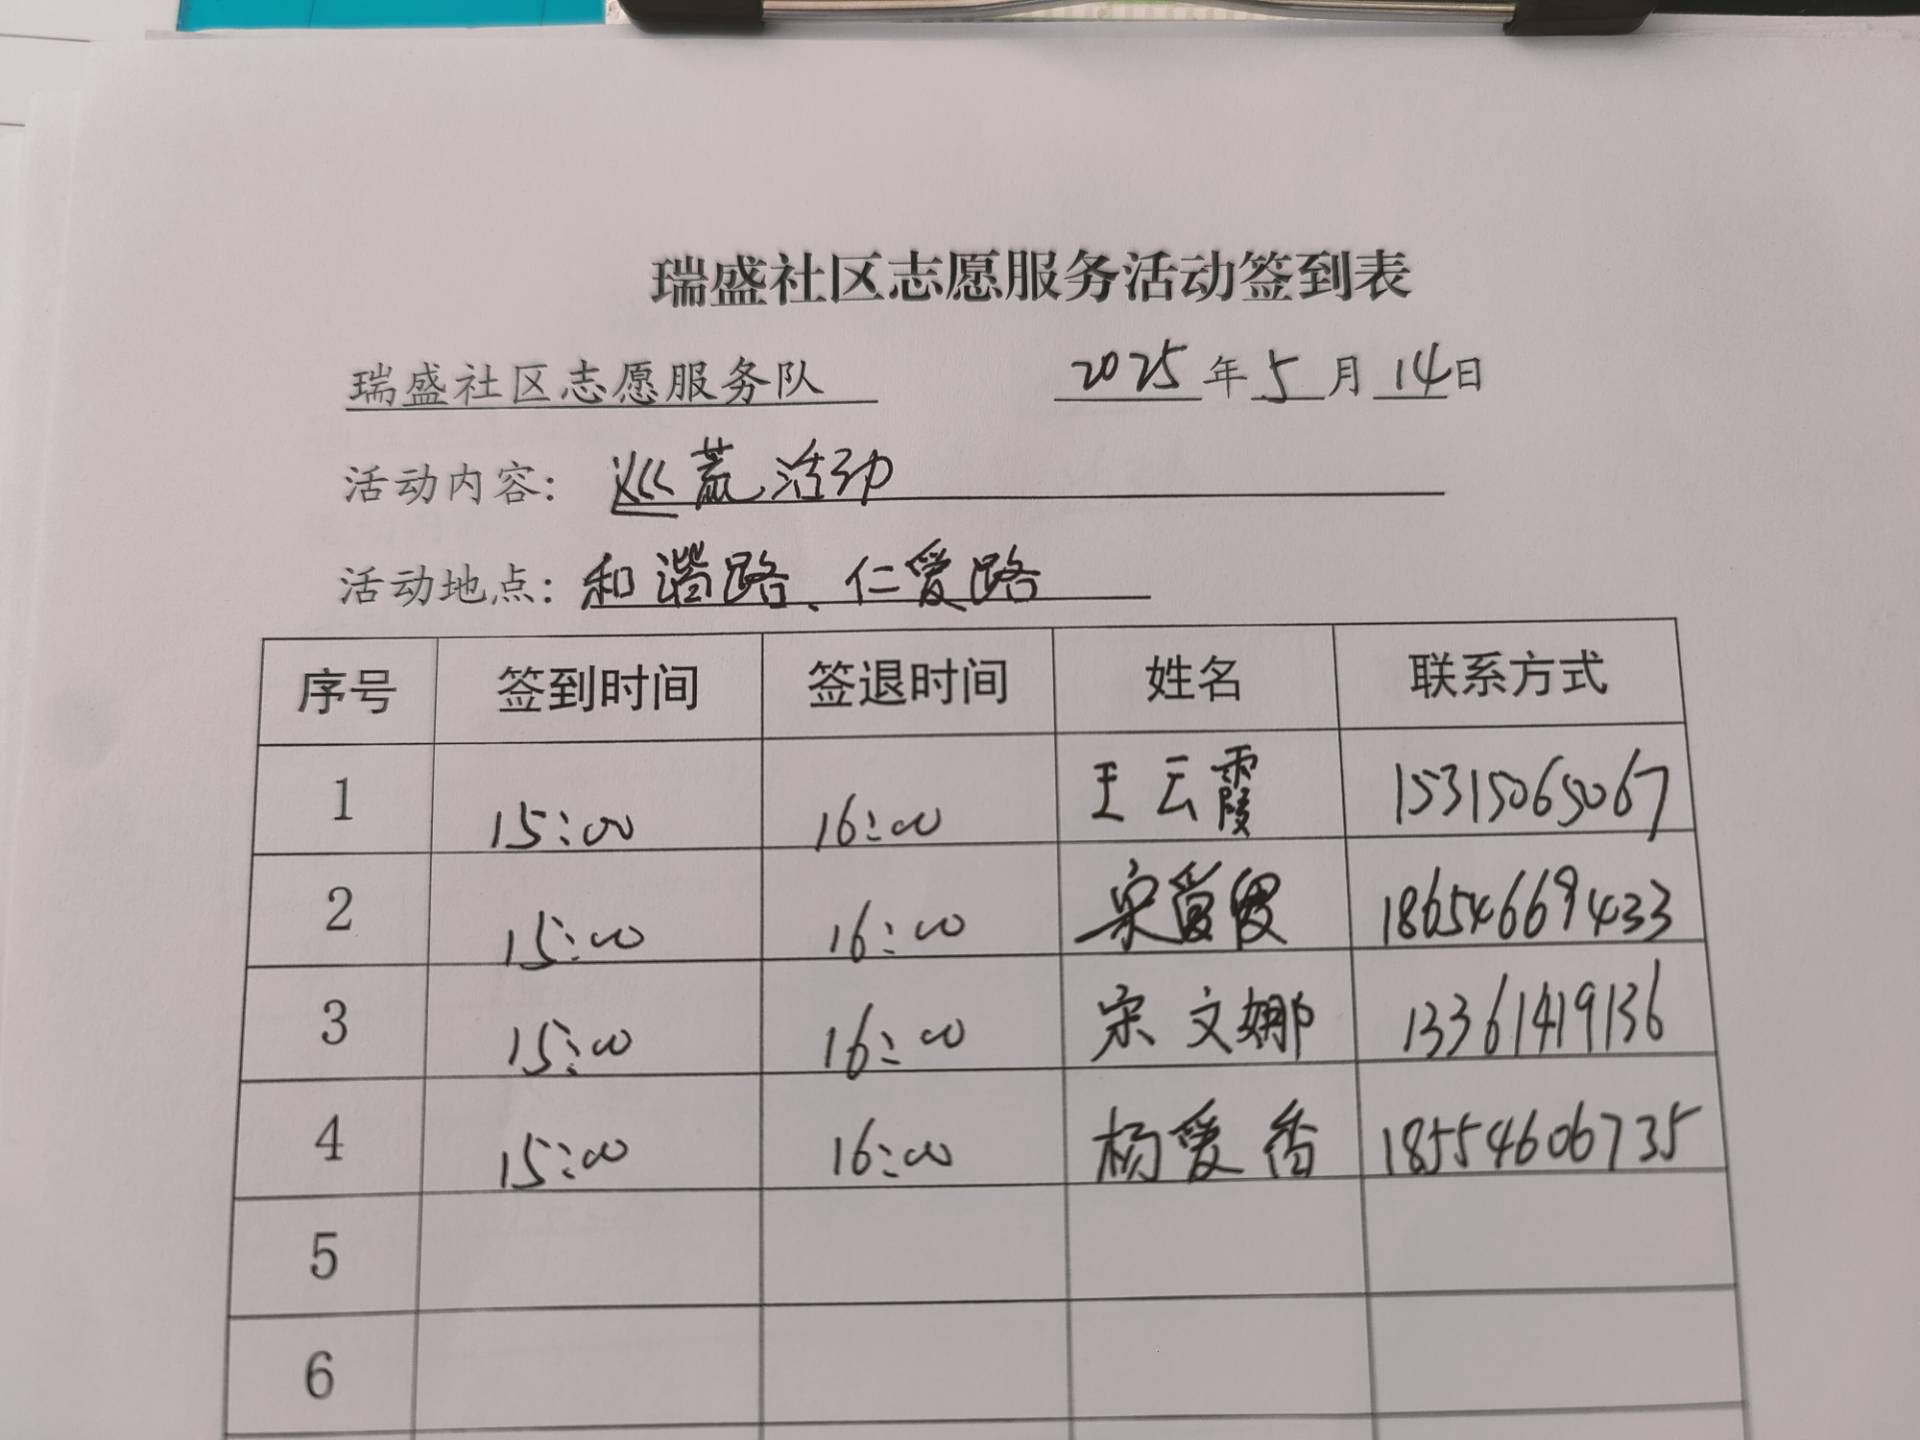 瑞盛社区志愿服务活动签到表
瑞盛社区志愿服务队 2025年5月14日
活动内容: 巡荒活动
活动地点: 和谐路、仁爱路
序号 签到时间 签退时间 姓名 联系方式
1 15:00 16:00 王云霞 15315065067
2 15:00 16:00 宋 18654669433
3 15:00 16:00 宋文娜 13361419136
4 15:00 16:00 杨爱香 18554606735
5
6